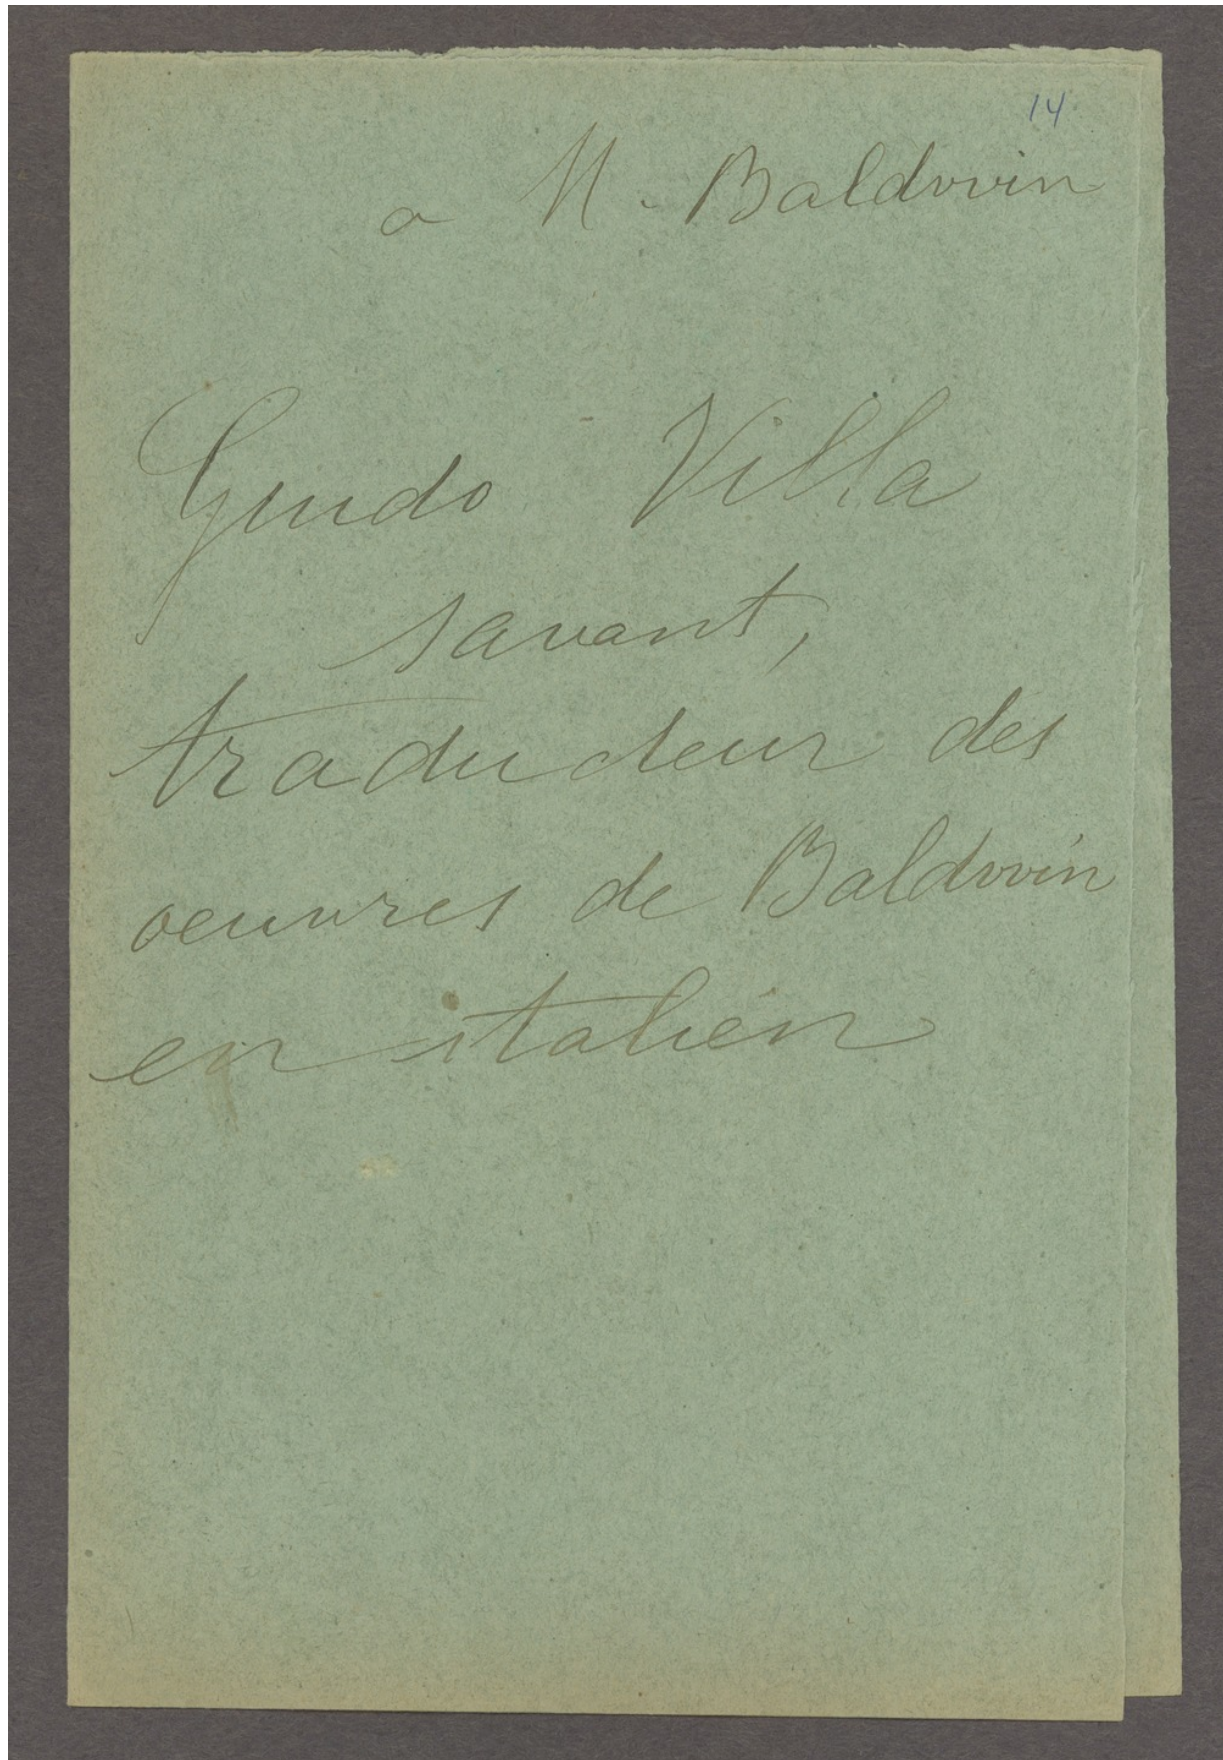 14
a M. Baldwin
Guido Villa
savant,
traducteur des
oeuvres de Baldwin
en italien